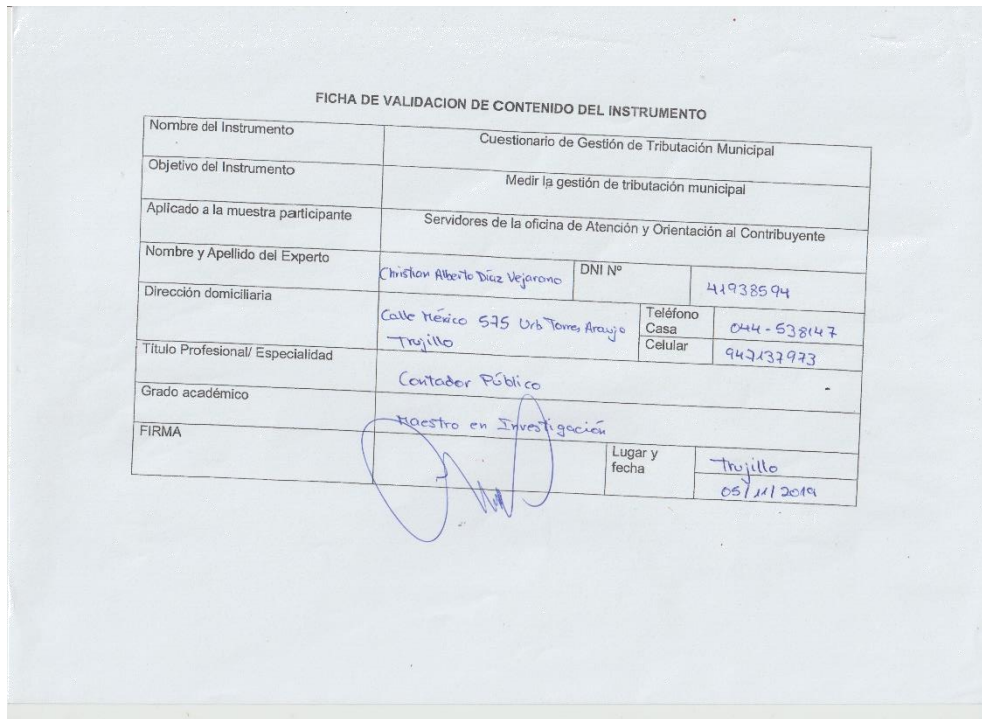 FICHA DE VALIDACION DE CONTENIDO DEL INSTRUMENTO
Nombre del Instrumento
Cuestionario de Gestión de Tributación Municipal
Objetivo del Instrumento
Medir la gestión de tributación municipal
Aplicado a la muestra participante
Servidores de la oficina de Atención y Orientación al Contribuyente
Nombre y Apellido del Experto
Christian Alberto Díaz Vejarano
DNI Nº
41938594
Dirección domiciliaria
Calle México 575 Urb Torres Araujo
Trujillo
Teléfono
Casa
044-538147
Celular
947137973
Título Profesional/ Especialidad
Contador Público
Grado académico
Maestro en Investigación
FIRMA
Lugar y
fecha
Trujillo
05/11/2019